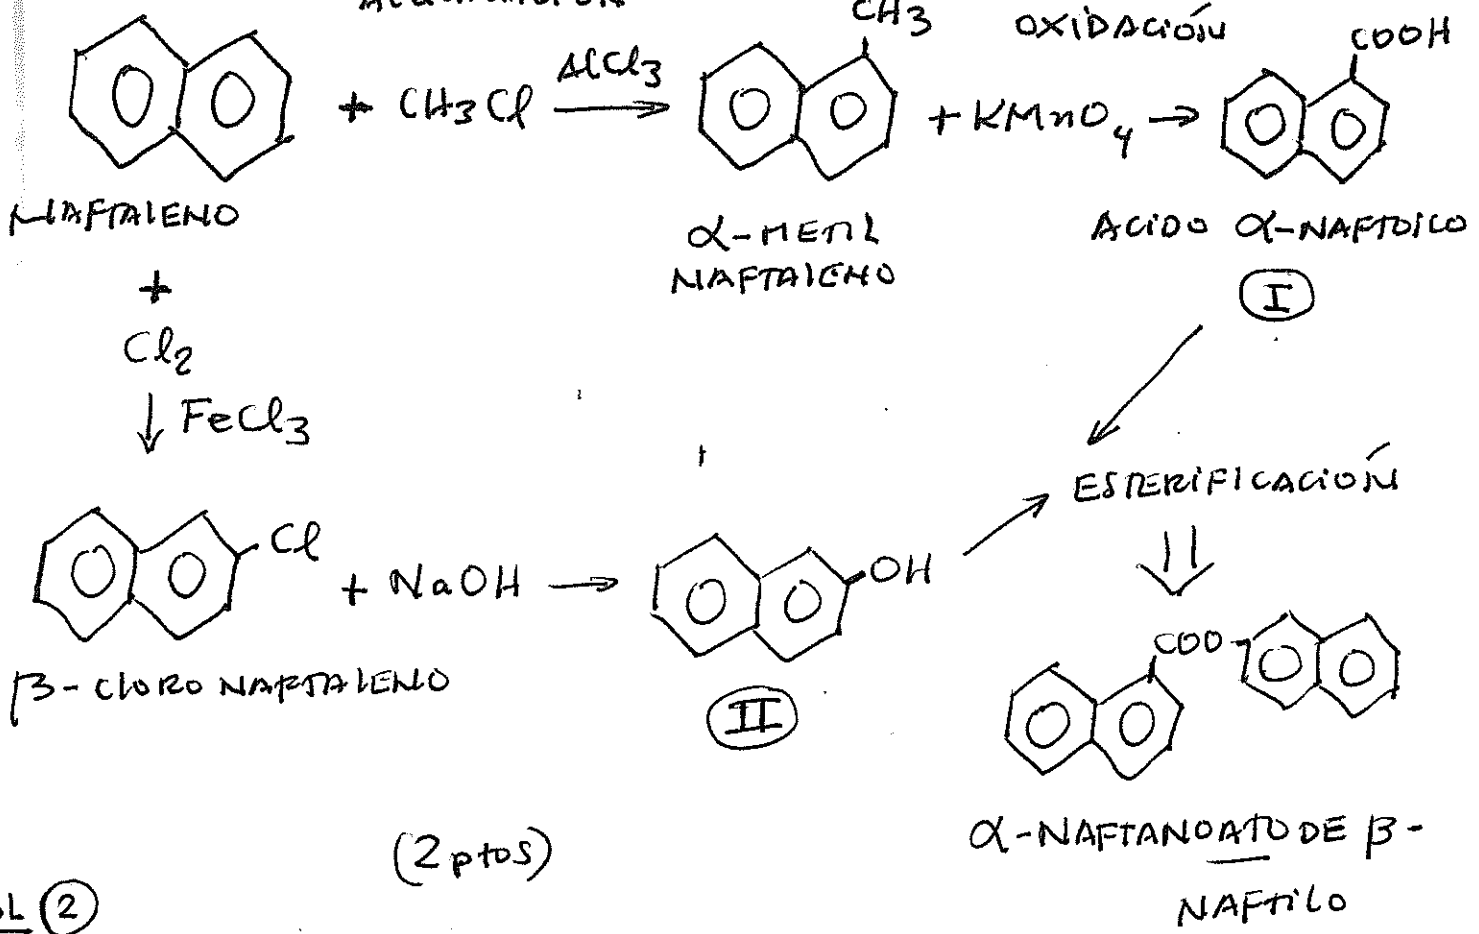 CH3 OXIDACIÓN COOH
+ CH3Cl AlCl3 → + KMnO4 →
NAFTALENO
α-METIL
NAFTALENO
ACIDO α-NAFTOICO
I
+
Cl2
↓ FeCl3
ESTERIFICACIÓN
Cl + NaOH → OH
COO
β-CLORO NAFTALENO
II
α-NAFTANOATO DE β-
NAFTILO
(2 ptos)
2